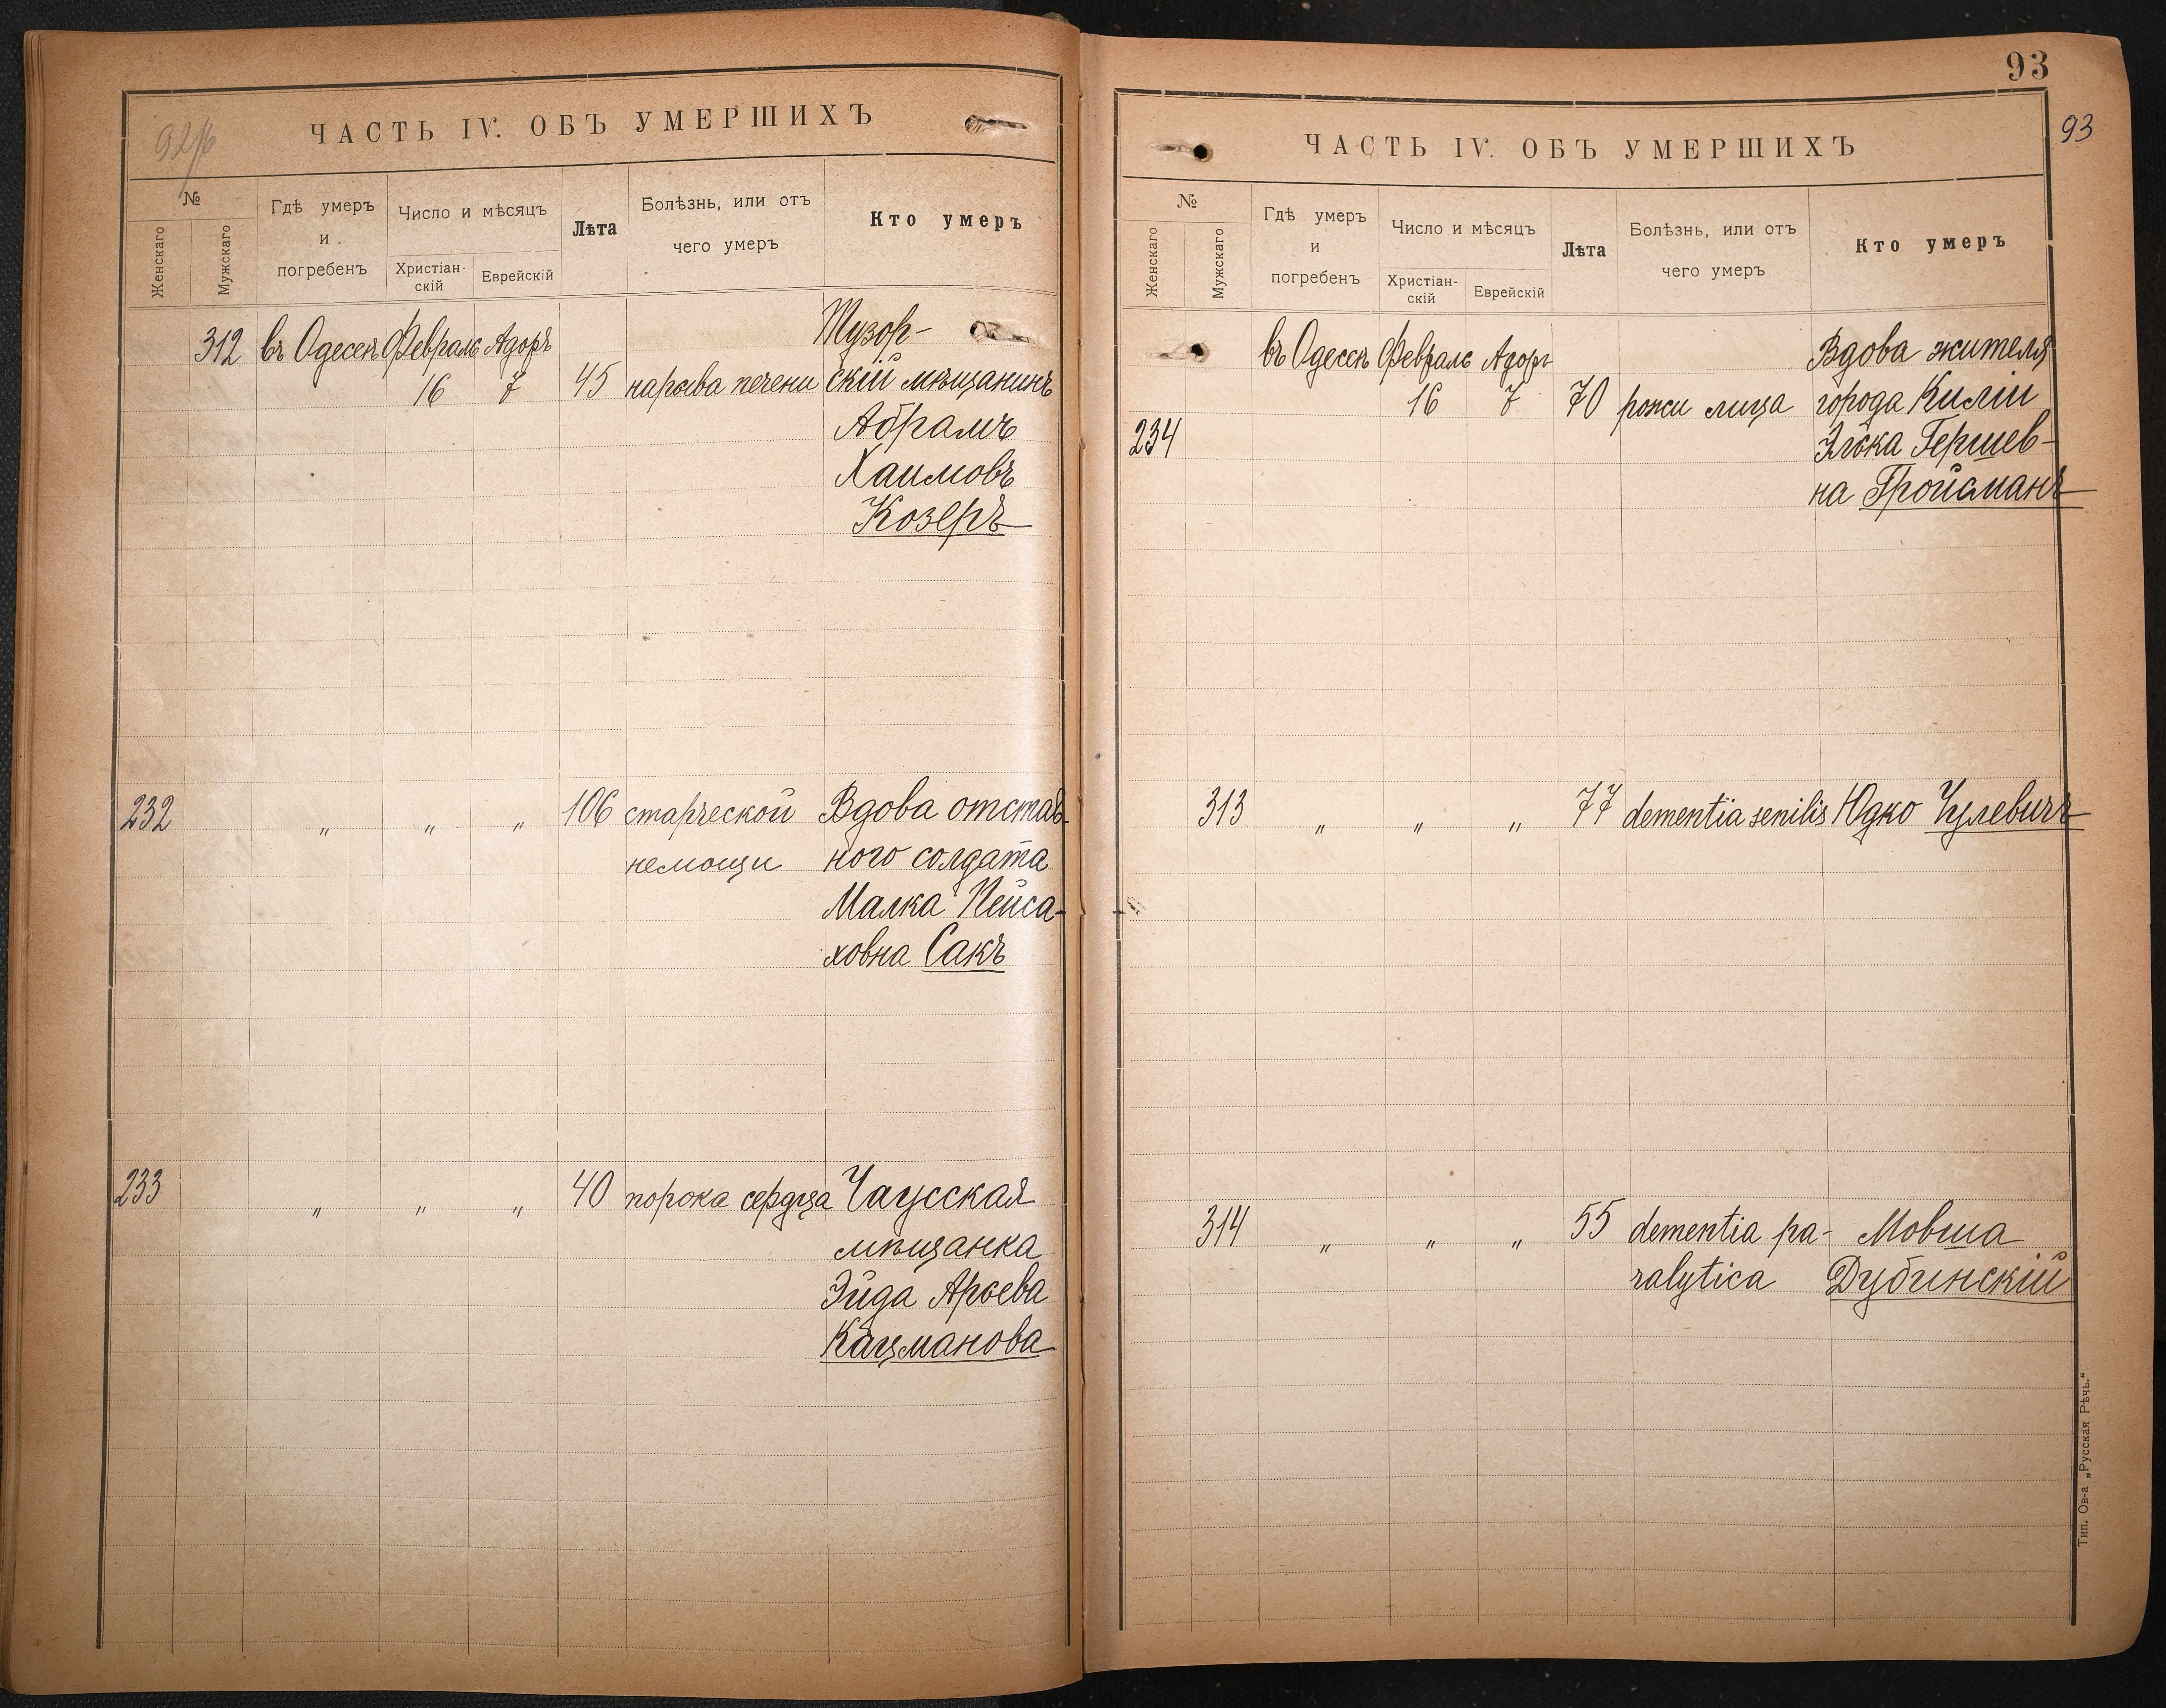 92/б
ЧАСТЬ IV. ОБЪ УМЕРШИХЪ
№
Женскаго
Мужскаго
Гдѣ умеръ
и
погребенъ
Число и мѣсяцъ
Христіан-
скій
Еврейскій
Лѣта
Болѣзнь, или отъ
чего умеръ
Кто умеръ
312 въ Одессѣ Февраль Адоръ
16 7 45 нарыва печени
скій мѣщанинъ
Абрамъ
Хаимовъ
Козеръ
232 " " " 106 старческой Вдова отстав-
немощи ного солдата
Малка Пейса-
ховна Сакъ
233 " " " 40 порока сердца Чаусская
мѣщанка
Эйда Арьева
Кацманова
93
93
ЧАСТЬ IV. ОБЪ УМЕРШИХЪ
№
Женскаго
Мужскаго
Гдѣ умеръ
и
погребенъ
Число и мѣсяцъ
Христіан-
скій
Еврейскій
Лѣта
Болѣзнь, или отъ
чего умеръ
Кто умеръ
въ Одессѣ Февраль Адоръ Вдова жителя
16 7 70 рожи лица города Киліи
234 Элька Гершев-
на Гройсманъ
313 " " " 77 dementia senilis Юдко Чулевичъ
314 " " " 55 dementia pa- Мовша
ralytica Дубинскій
Тип. Ов-а „Русская Рѣчь."